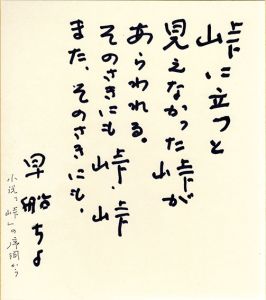 峠に立つと
見えなかった峠が
あらわれる。
そのさきにも峠、峠
また、そのさきにも。
早船ちよ
小説「峠」の序詞から